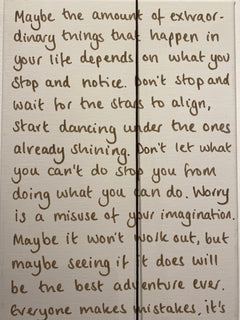 Maybe the amount of extraor-
dinary things that happen in
your life depends on what you
stop and notice. Don't stop and
wait for the stars to align,
start dancing under the ones
already shining. Don't let what
you can't do stop you from
doing what you can do. Worry
is a misuse of your imagination.
Maybe it won't work out, but
maybe seeing if it does will
be the best adventure ever.
Everyone makes mistakes, it's